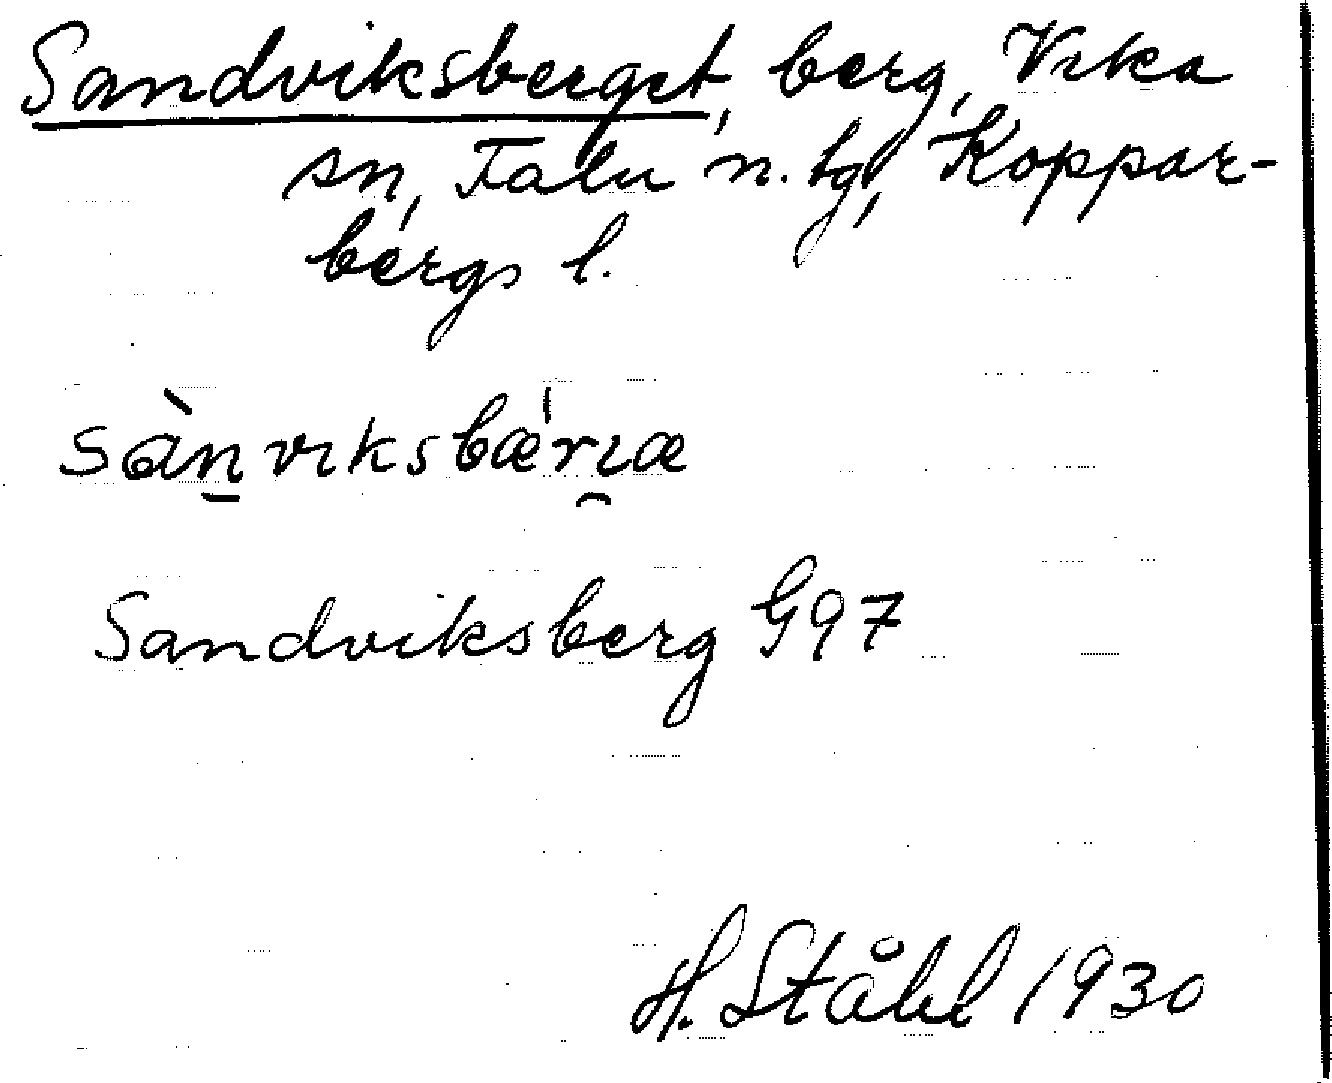 Sandviksberget, berg, Vika
sn, Falu n. tg, Koppar-
bergs l.
sàn̠viksbǽrı̯æ
Sandviksberg G97
H. Ståhl 1930